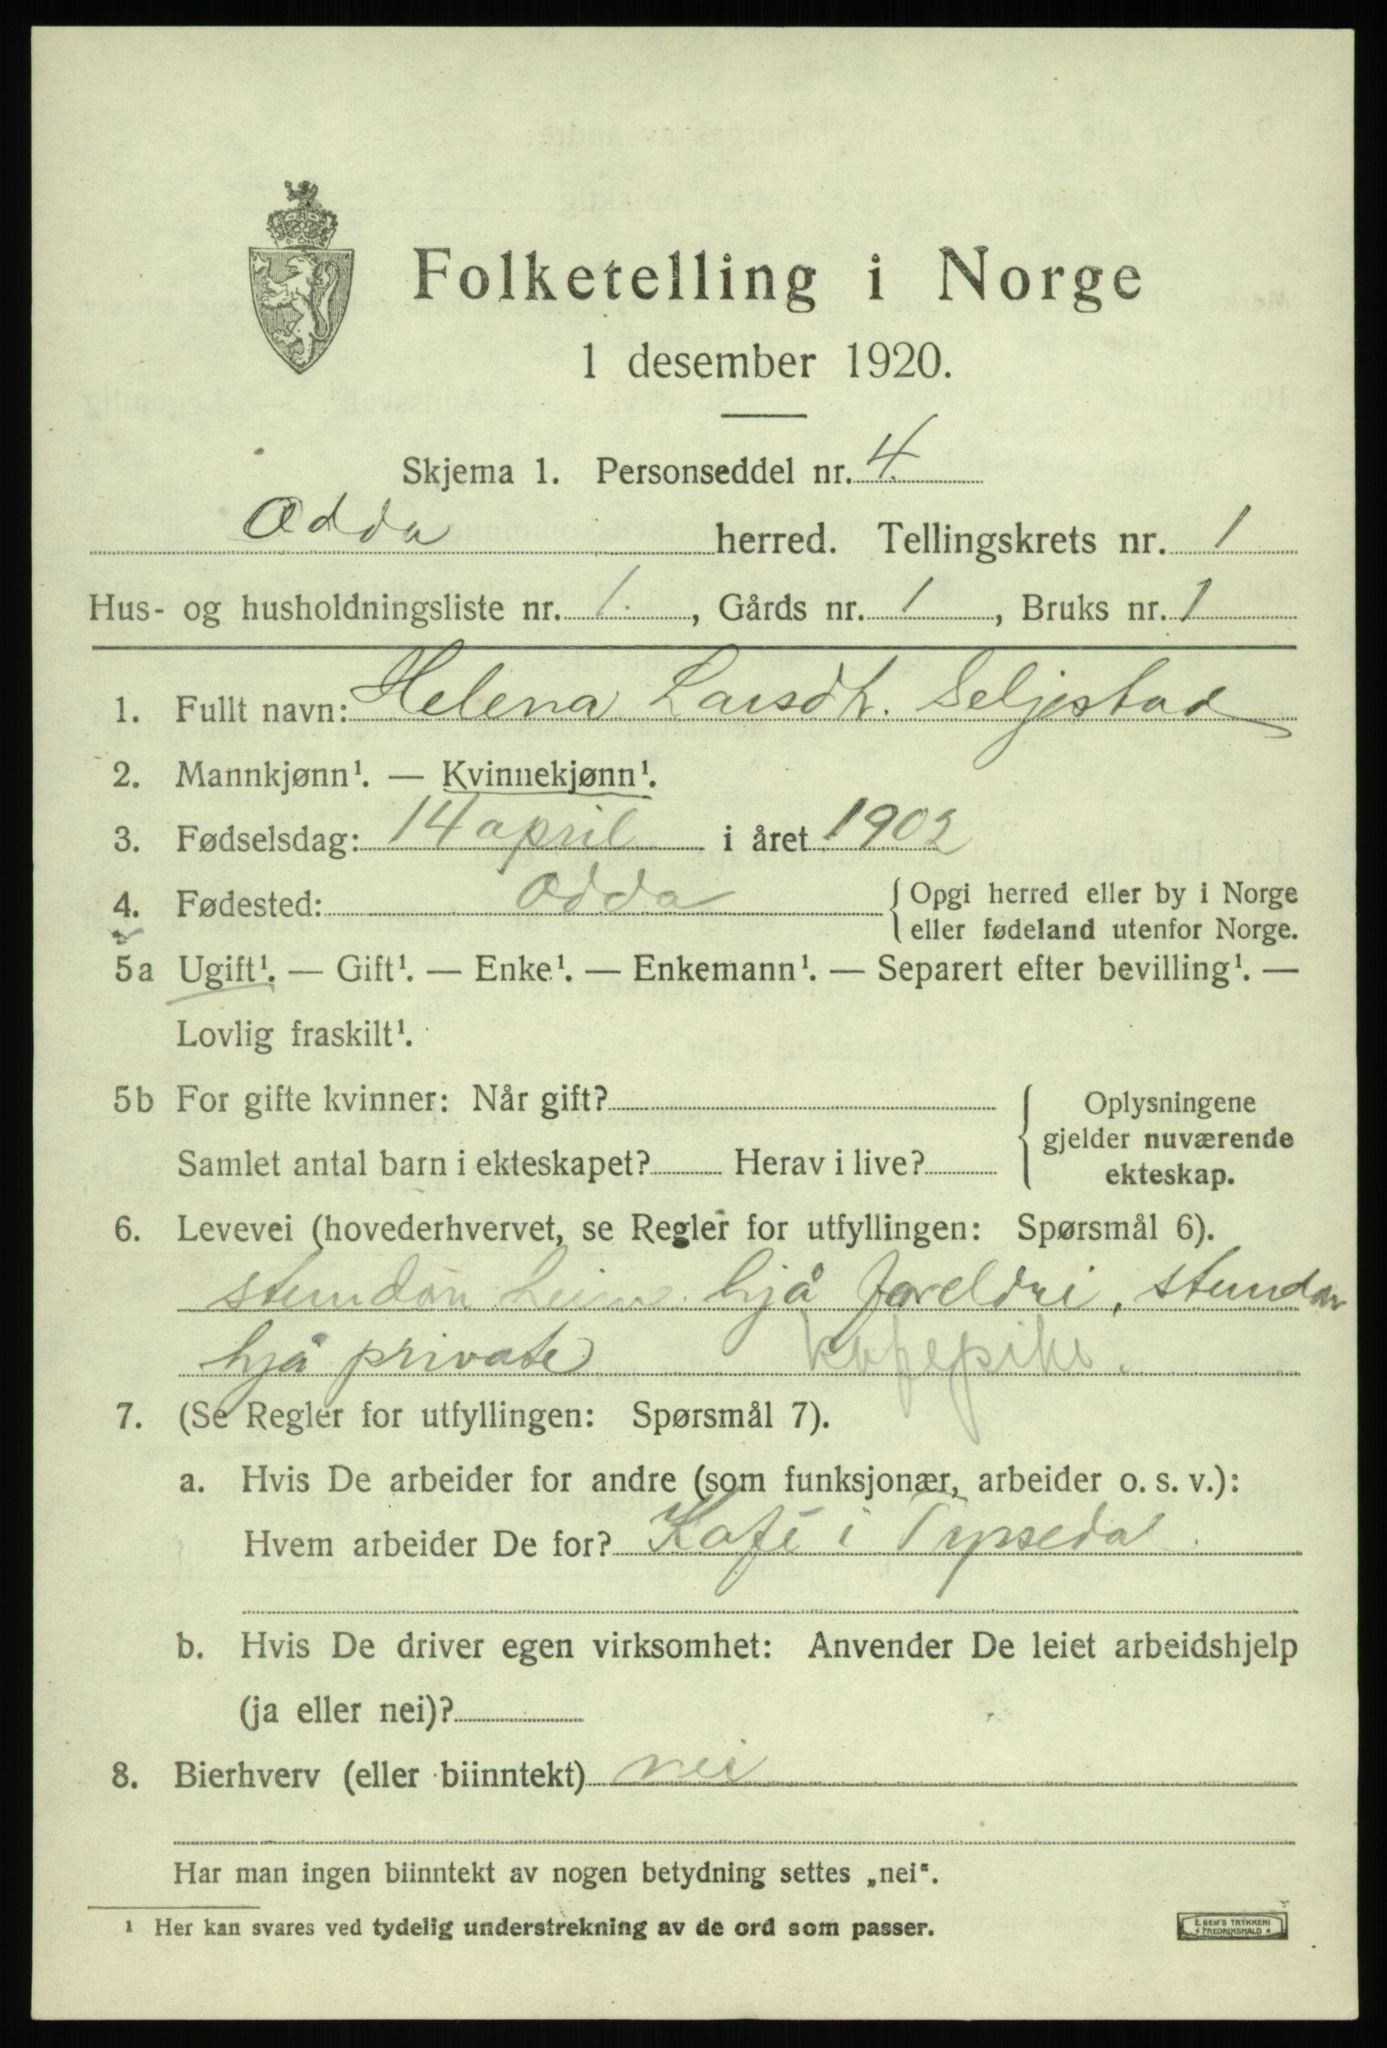 Folketelling i Norge
1 desember 1920.
Skjema 1. Personseddel nr. 4
Odda herred. Tellingskrets nr. 1
Hus- og husholdningsliste nr. 1., Gårds nr. 1, Bruks nr. 1
1. Fullt navn: Helena Larsdtr. Seljestad
2. Mannkjønn¹. — Kvinnekjønn¹.
3. Fødselsdag: 14 april i året 1902
4. Fødested: Odda { Opgi herred eller by i Norge
eller fødeland utenfor Norge.
5a Ugift¹. — Gift¹. — Enke¹. — Enkemann¹. — Separert efter bevilling¹. —
Lovlig fraskilt¹.
5b For gifte kvinner: Når gift?
Samlet antal barn i ekteskapet? Herav i live?
Oplysningene
gjelder nuværende
ekteskap.
6. Levevei (hovederhvervet, se Regler for utfyllingen: Spørsmål 6).
stundon heime hjå foreldri, stundon
hjå private kafepike.
7. (Se Regler for utfyllingen: Spørsmål 7).
a. Hvis De arbeider for andre (som funksjonær, arbeider o. s. v.):
Hvem arbeider De for? Kafé i Tyssedal.
b. Hvis De driver egen virksomhet: Anvender De leiet arbeidshjelp
(ja eller nei)?
8. Bierhverv (eller biinntekt) nei
Har man ingen biinntekt av nogen betydning settes „nei“.
¹ Her kan svares ved tydelig understrekning av de ord som passer.
E. SEM'S TRYKKERI
* FREDRIKSHALD *